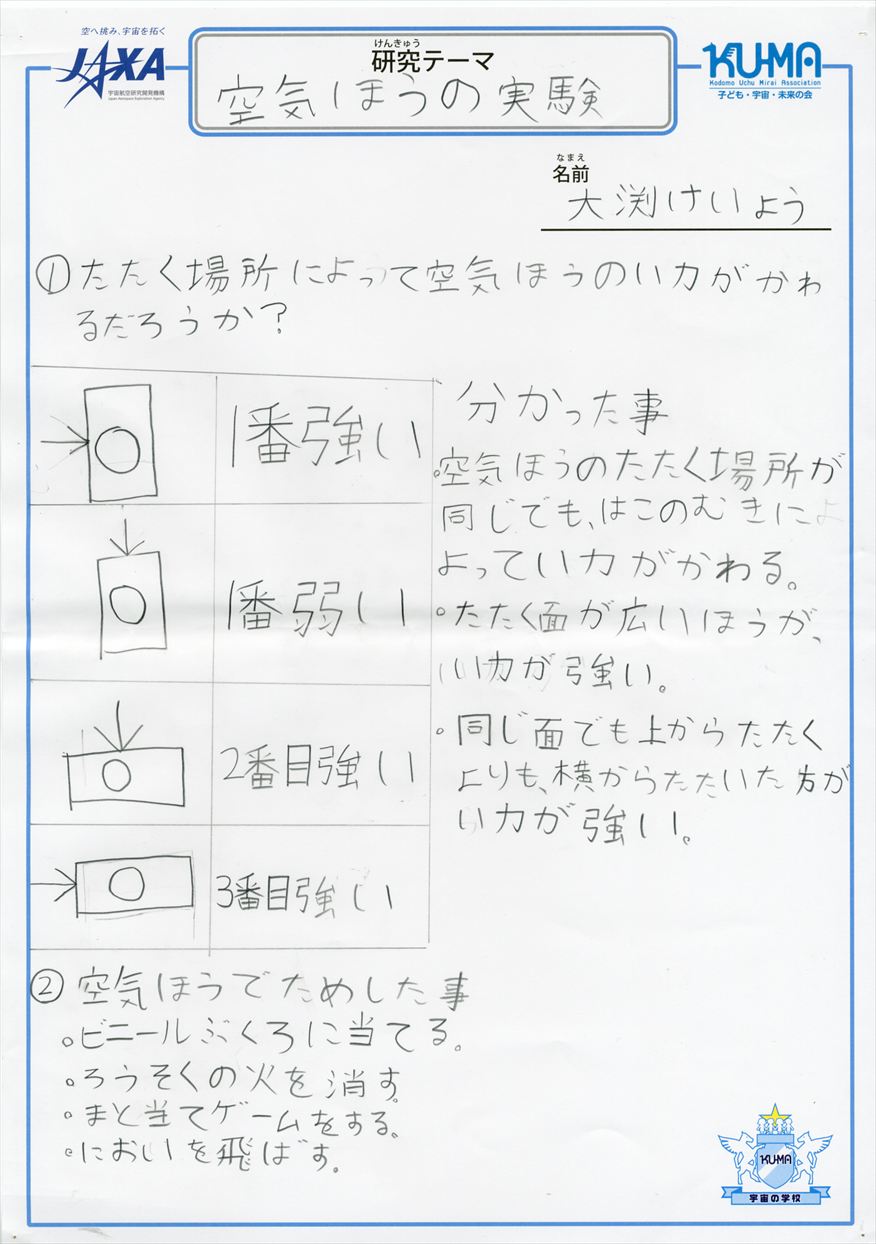 空へ挑み、宇宙を拓く
JAXA
宇宙航空研究開発機構
Japan Aerospace Exploration Agency
けんきゅう
研究テーマ
空気ほうの実験
KU-MA
Kodomo Uchu Mirai Association
子ども・宇宙・未来の会
なまえ
名前
大渕けいよう
①たたく場所によって空気ほうのい力がかわ
るだろうか?
1番強い
1番弱い
2番目強い
3番目強い
分かった事
。空気ほうのたたく場所が
同じでも、はこのむきによ
よってい力がかわる。
。たたく面が広いほうが、
い力が強い。
。同じ面でも上からたたく
よりも、横からたたいた方が
い力が強い。
②空気ほうでためした事
。ビニールぶくろに当てる。
。ろうそくの火を消す。
。まと当てゲームをする。
。においを飛ばす。
KU-MA
宇宙の学校